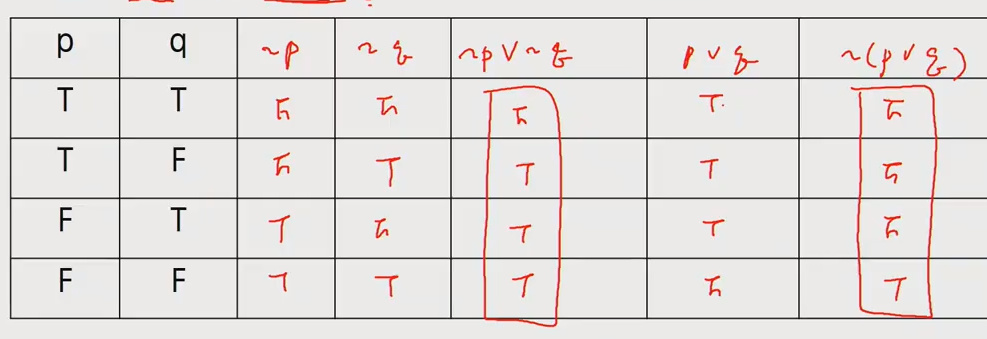 p q ~p ~q ~p∨~q p∨q ~(p∨q)
T T F F F T F
T F F T T T F
F T T F T T F
F F T T T F T